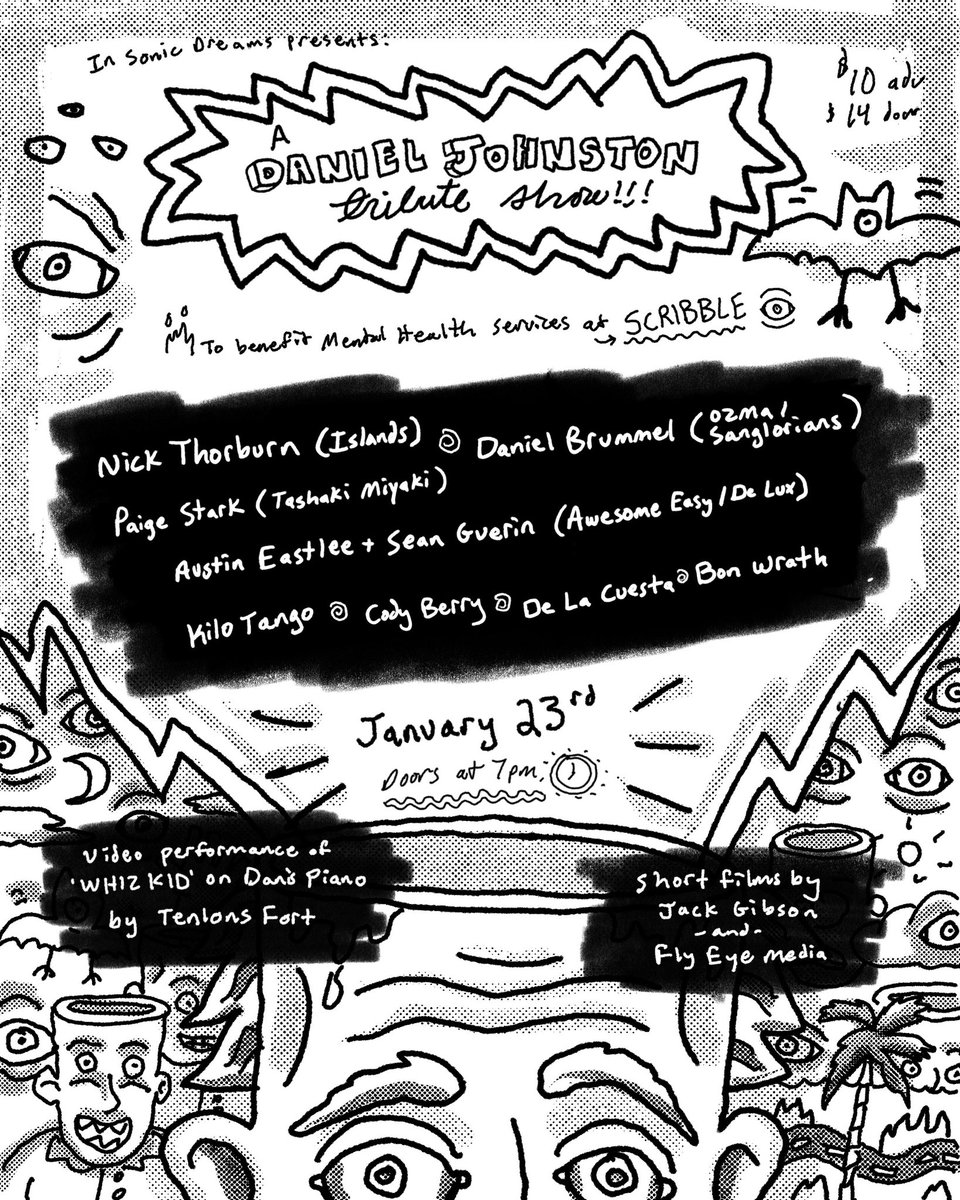 In Sonic Dreams presents:
$10 adv
$14 door
A
DANIEL JOHNSTON
tribute show!!!
To benefit Mental Health services at SCRIBBLE
Nick Thorburn (Islands) @ Daniel Brummel (Ozma/Sanglorians)
Paige Stark (Tashaki Miyaki)
Austin Eastlee + Sean Guerin (Awesome Easy / De Lux)
Kilo Tango @ Cody Berry @ De La Cuesta @ Bon Wrath
January 23rd
Doors at 7pm.
Video performance of
'WHIZ KID' on Dan's Piano
by Tenlons Fort
Short films by
Jack Gibson
-and-
Fly Eye Media